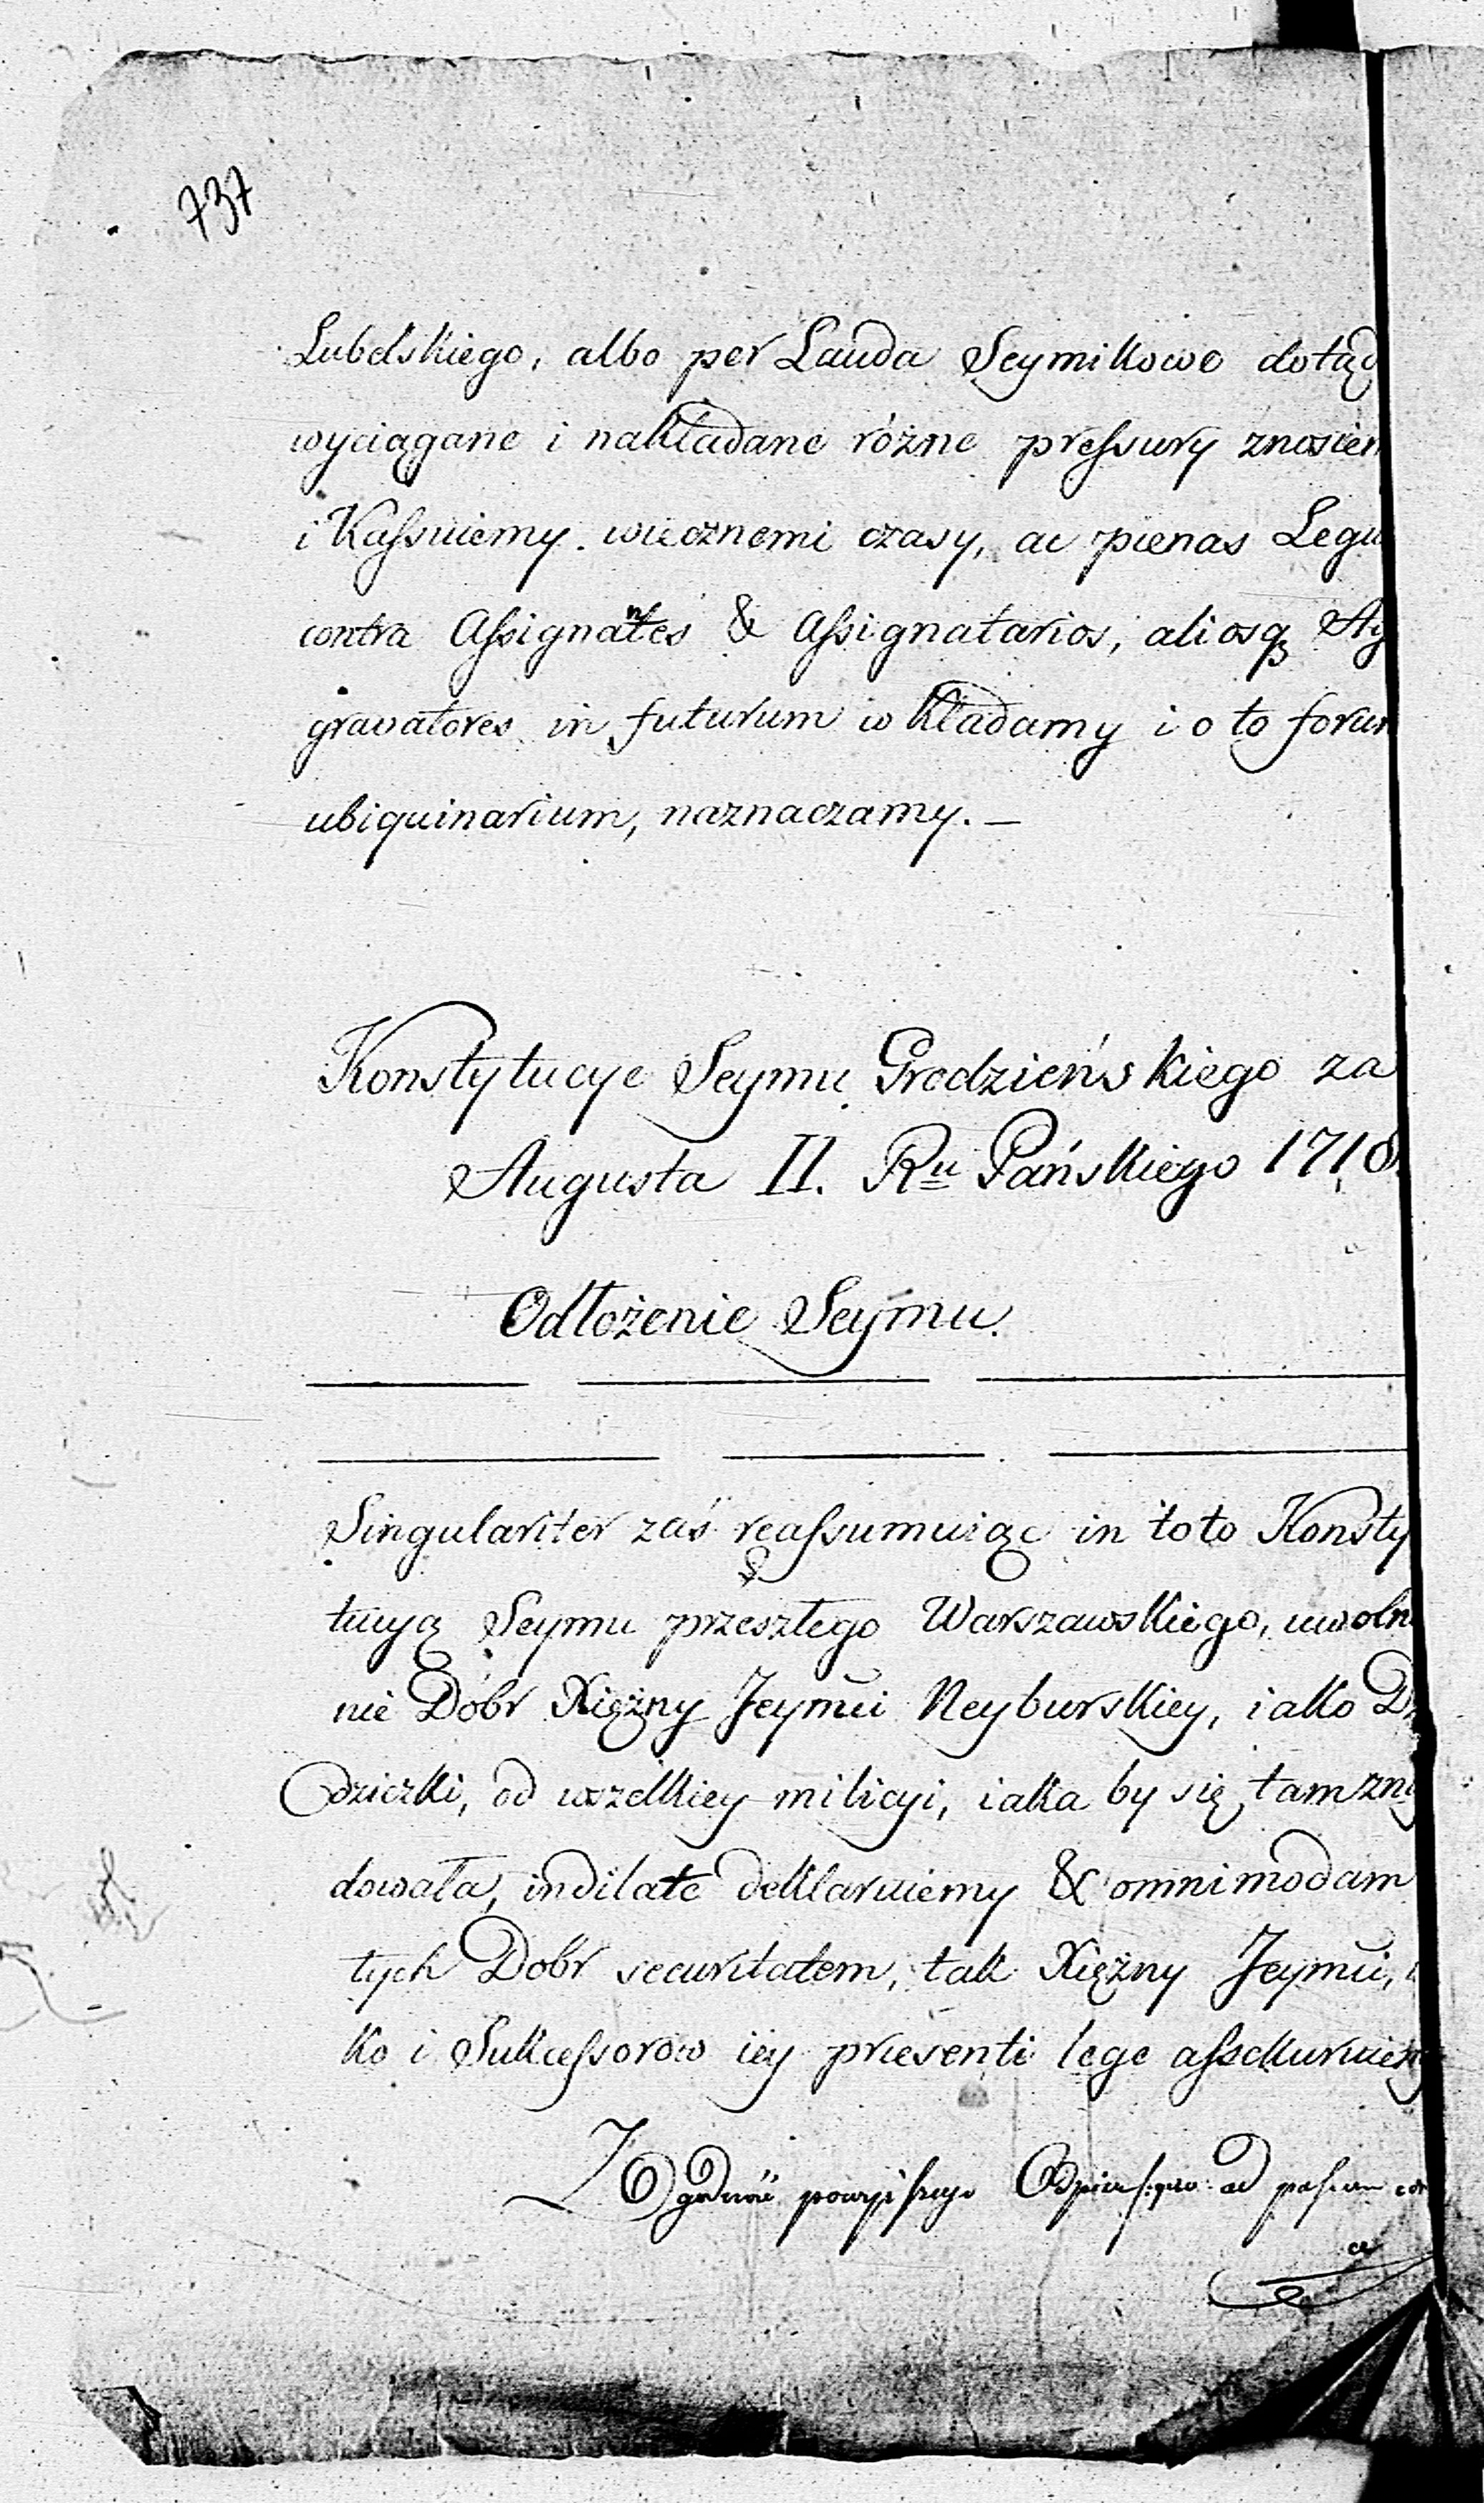 737
Lubelskiego, albo per Lauda Seymikowe dotąd
wyciągane i nakładane różne pressury znosiem
i Kassuiemy. wiecznemi czasy, ac pienas Legu
contra Assignantes & Assignatarios, aliosq Ag
gravatores in futurum wkładamy i o to forum
ubiquinarium, naznaczamy. —
Konstytucye Seymu Grodzieńskiego za
Augusta II. Ru Pańskiego 1718.
Odłożenie Seymu.
Singulariter zaś reassumuiąc in toto Konsty
tucyą Seymu przeszłego Warszawskiego, uwolni
nie Dóbr Xiężny Jeymci Neyburskiey, iako Dz
dziczki, od wszelkiey milicyi, iaka by się tam zny
dowała, indilate deklaruiemy & omnimodam
tych Dobr securitatem, tak Xiężny Jeymci,
ko i Sukcessorow iey priesenti lege assekuruiemy
Zgodność powyższego